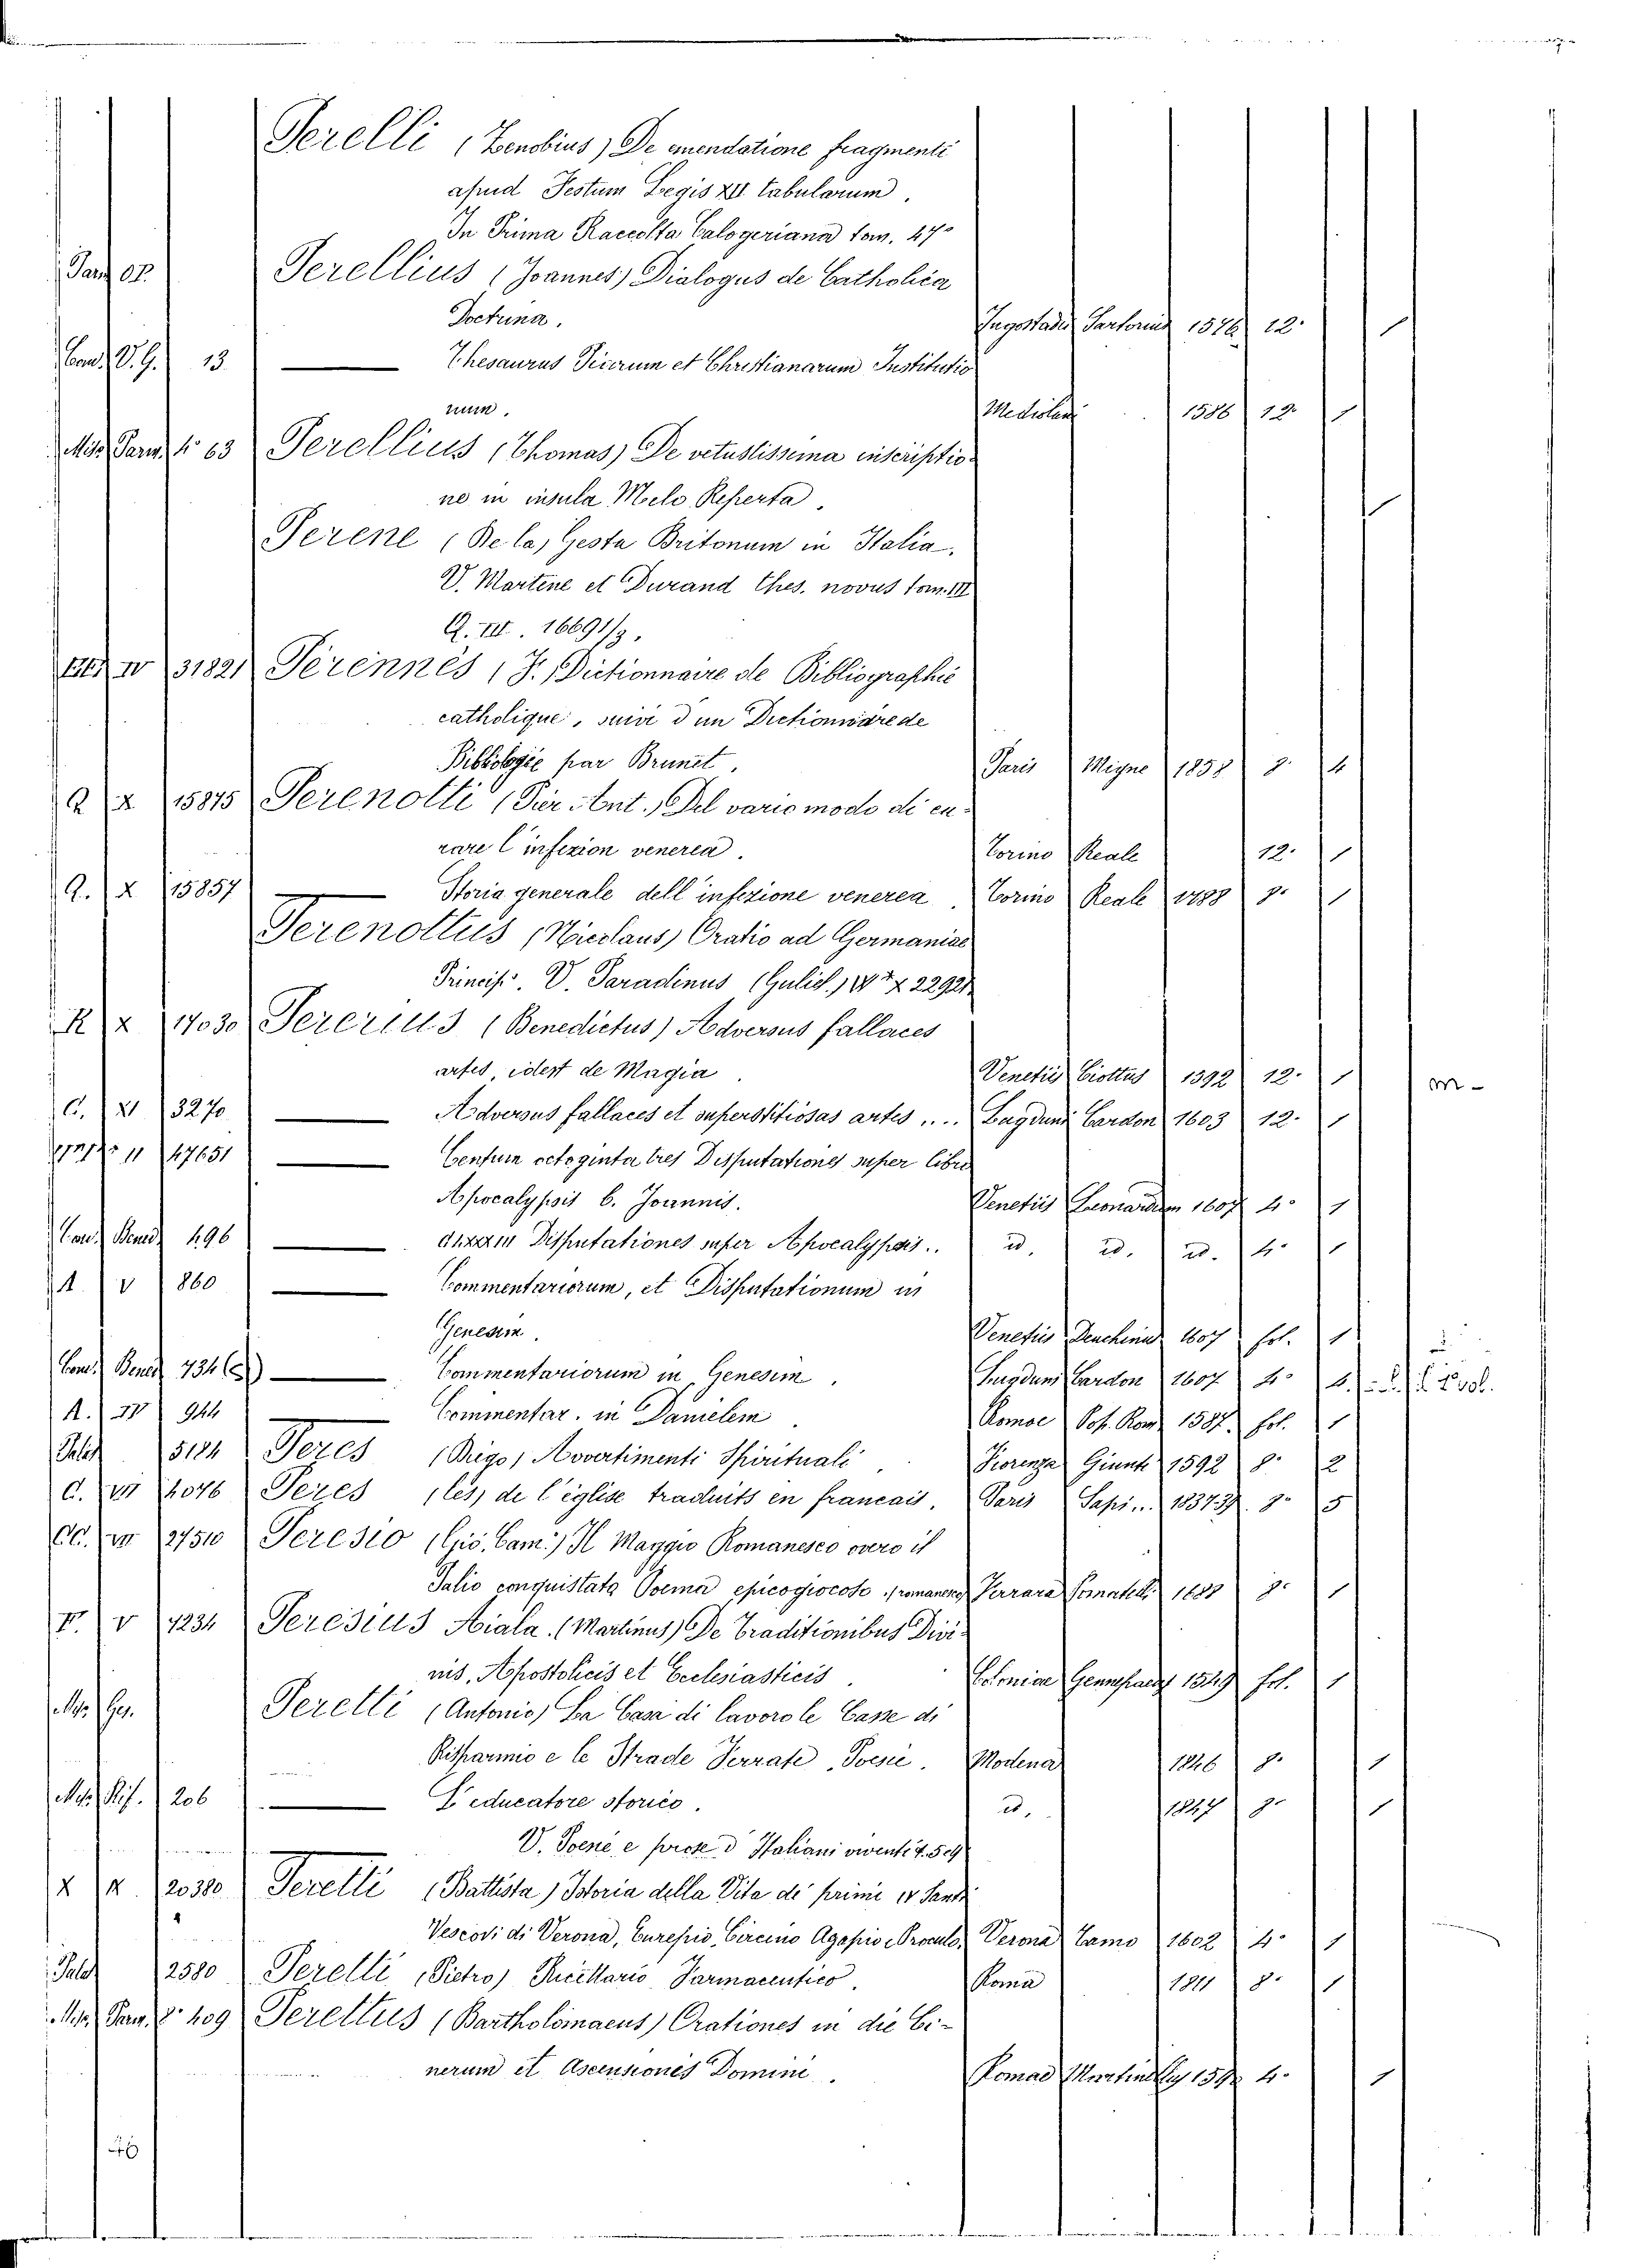 Perelli (Zenobius) De emendatione fragmenti
apud Festum Legis XII tabularum.
In Prima Raccolta Calogeriana tom. 47º
Perellius (Joannes) Dialogus de Catholica
Doctrina. Ingostadii Sartorius 1576 12º 1
Cond. V.G. 13 — Thesaurus Precum et Christianarum Institutio
num. Mediolani 1586 12º 1
Misc. Parm. 4º 63 Perellius (Thomas) De vetustissima inscriptio-
ne in insula Melo Reperta. 1
Perene (De la) Gesta Britonum in Italia.
V. Martene et Durand Thes. novus tom. III
Q. III. 16691/3.
IV 31821 Pérennès (F.) Dictionnaire de Bibliographie
catholique, suivi d'un Dictionnaire de
Bibliologie par Brunet. Paris Migne 1858 8º 4
Q X 15815 Perenotti (Pier Ant.) Del vario modo di cu-
rare l'infezion venerea. Torino Reale 12º 1
Q. X 15857 — Storia generale dell'infezione venerea. Torino Reale 1788 8º 1
Perenottus (Nicolaus) Oratio ad Germaniae
Princip. V. Paradinus (Guliel.) X 22921
R X 17030 Pererius (Benedictus) Adversus fallaces
artes, idest de Magia. Venetiis Ciottus 1592 12º 1 m-
C. XI 3270 — Adversus fallaces et superstitiosas artes.... Lugduni Cardon 1603 12º 1
11 47651 — Centum octoginta tres Disputationes super libro
Apocalypsis b. Joannis. Venetiis Leonardum 1607 4º 1
Cond. Bened. 496 — clxxxiii Disputationes super Apocalypsis.. id. id. id. 4º 1
A. V 860 — Commentariorum, et Disputationum in
Genesim. Venetiis Deuchinus 1607 fol. 1
Cond. Bened. 734 — Commentariorum in Genesim. Lugduni Cardon 1607 4º 4
A. IV 944 — Commentar. in Danielem. Romae Pop. Rom. 1587 fol. 1
Palch 5184 Peres (Brigo) Avvertimenti Spirituali. Fiorenza Giunti 1592 8º 2
C. VII 4076 Peres (les) de l'église traduits en francais. Paris Sapi... 1837-39. 8º 5
CC. VII 27510 Peresio (Gio. Cam.) Il Maggio Romanesco overo il
Palio conquistato Poema epicogiocoso romanesco Ferrara Pomatelli 1688 8º 1
V 4234 Peresius Aiala. (Martinus) De Traditionibus Divi-
nis, Apostolicis et Ecclesiasticis. Coloniae Gennepaeus 1549 fol. 1
Misc. Ger. Peretti (Antonio) La Casa di lavoro le Casse di
Risparmio e le Strade Ferrate, Poesie. Modena 1846 8º 1
Misc. Rif. 206 — L'educatore storico. id. 1847 8º 1
V. Poesie e prose d'Italiani viventi 4. 509
X X 20380 Peretti (Battista) Istoria della Vita di primi iv Santi
Vescovi di Verona, Eurepio, Circino Agapio e Proculo. Verona Tamo 1602 4º 1
Palch 2580 Peretti (Pietro) Ricettario Farmaceutico. Roma 1811 8º 1
Misc. Parm. 8º 409 Perettus (Bartholomaeus) Orationes in die Ci-
nerum et Ascensionis Domini. Romae 4º 1